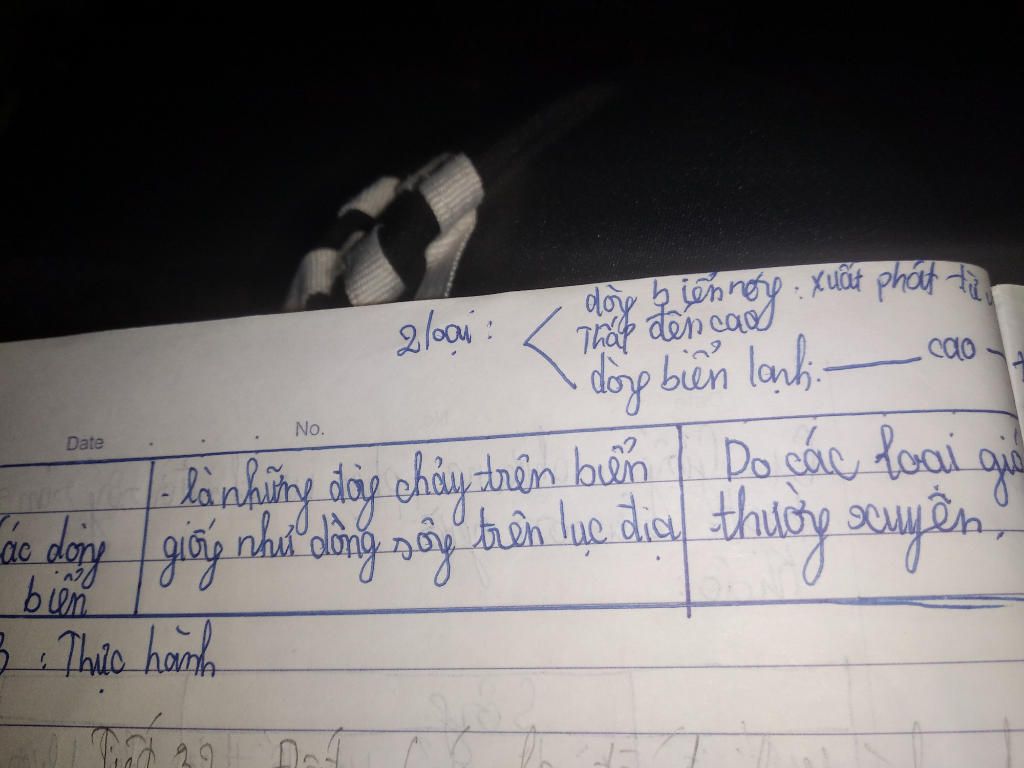 dòng biển nóng : xuất phát từ
2 loại : Thấp đến cao
dòng biển lạnh. cao
Date . . . No.
- là những dòng chảy trên biển
Do các loại gió
các dòng giống như dòng sông trên lục địa thường xuyên,
biển
3 : Thực hành
Tiết 32